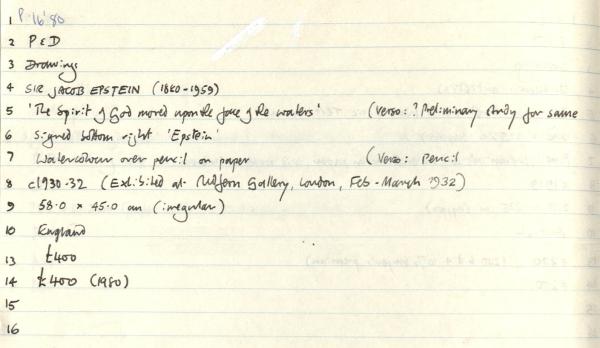 1 P.16'80
2 P & D
3 Drawings
4 SIR JACOB EPSTEIN (1880-1959)
5 'The Spirit of God moved upon the face of the waters' (Verso: ? Preliminary study for same
6 Signed bottom right 'Epstein'
7 Watercolour over pencil on paper (Verso: Pencil
8 c1930-32 (Exhibited at Redfern Gallery, London, Feb-March 1932)
9 58.0 x 45.0 cm (irregular)
10 England
13 £400
14 £400 (1980)
15
16